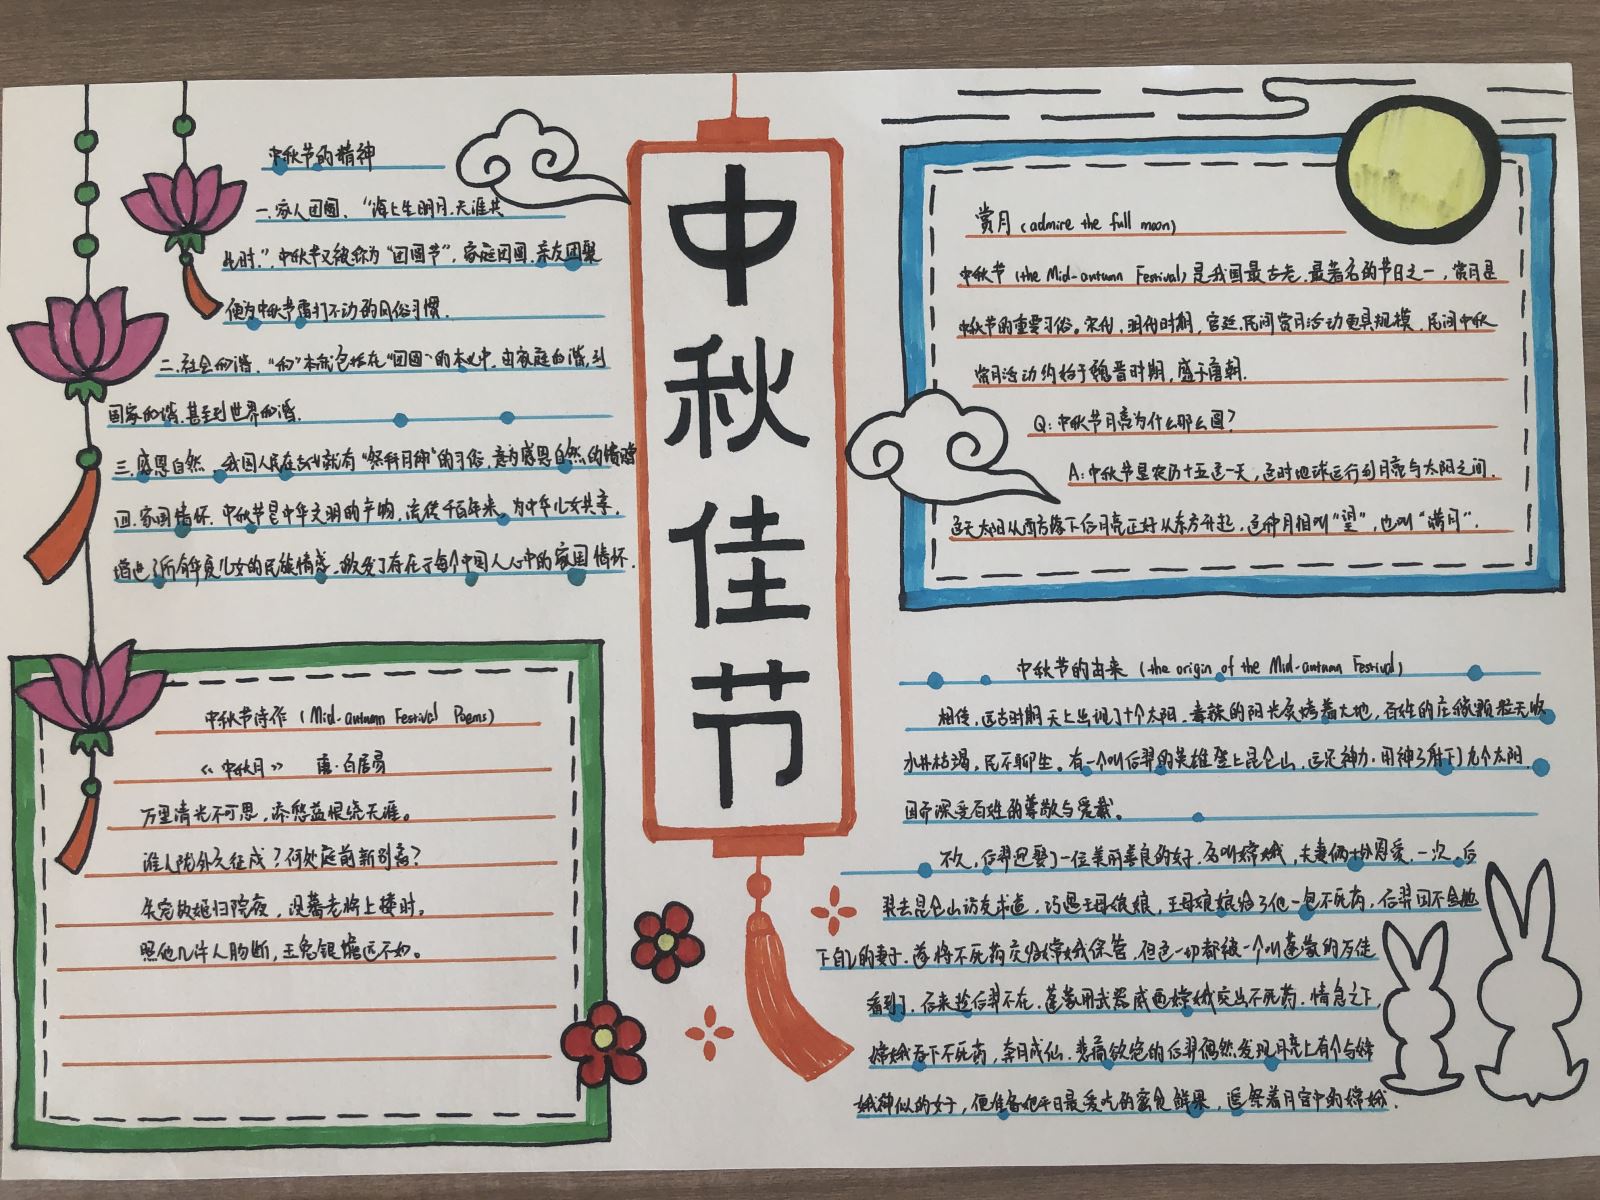 中秋佳节
中秋节的精神
一.家人团圆、“海上生明月,天涯共
此时.”,中秋节又被称为“团圆节”,家庭团圆.亲友团聚
便为中秋节雷打不动的风俗习惯.
二.社会和谐.“和”本就包括在“团圆”的本义中,由家庭和谐,到
国家和谐.甚至到世界和谐.
三.感恩自然、我国人民在古代就有“祭拜月神”的习俗,意为感恩自然的馈赠
四.家国情怀.中秋节是中华文明的产物,流传千百年来,为中华儿女共享,
增进了所有华夏儿女的民族情感,激发了存在于每个中国人心中的家国情怀.
中秋节诗作(Mid-autumn Festival Poems)
《中秋月》 唐·白居易
万里清光不可思,添愁益恨绕天涯。
谁人陇外久征戍?何处庭前新别离?
失宠故姬归院夜,没蕃老将上楼时。
照他几许人肠断,玉兔银蟾远不如。
赏月(admire the full moon)
中秋节(the Mid-autumn Festival)是我国最古老.最著名的节日之一,赏月是
中秋节的重要习俗。宋代,明代时期,宫廷,民间赏月活动更具规模,民间中秋
赏月活动约始于魏晋时期,盛于唐朝.
Q:中秋节月亮为什么那么圆?
A:中秋节是农历十五这一天,这时地球运行到月亮与太阳之间.
这天太阳从西方落下后月亮正好从东方升起,这种月相叫“望”,也叫“满月”.
中秋节的由来(the origin of the Mid-autumn Festival)
相传,远古时期天上出现了十个太阳.毒辣的阳光炙烤着大地,百姓的庄稼颗粒无收
水井枯竭,民不聊生。有一个叫后羿的英雄登上昆仑山,运足神力.用神弓射下九个太阳.
因而深受百姓的尊敬与爱戴。
不久,后羿迎娶了一位美丽善良的女子.名叫嫦娥,夫妻俩十分恩爱.一次,后
羿去昆仑山访友求道,巧遇王母娘娘,王母娘娘给了他一包不死药,后羿因不舍抛
下自己的妻子,遂将不死药交给嫦娥保管,但这一切都被一个叫蓬蒙的歹徒
看到了.后来趁后羿不在.蓬蒙用武器威逼嫦娥交出不死药.情急之下,
嫦娥吞下不死药,奔月成仙.悲痛欲绝的后羿偶然发现月亮上有个与嫦
娥神似的女子,便准备她平日最爱吃的蜜食鲜果,遥祭着月宫中的嫦娥.